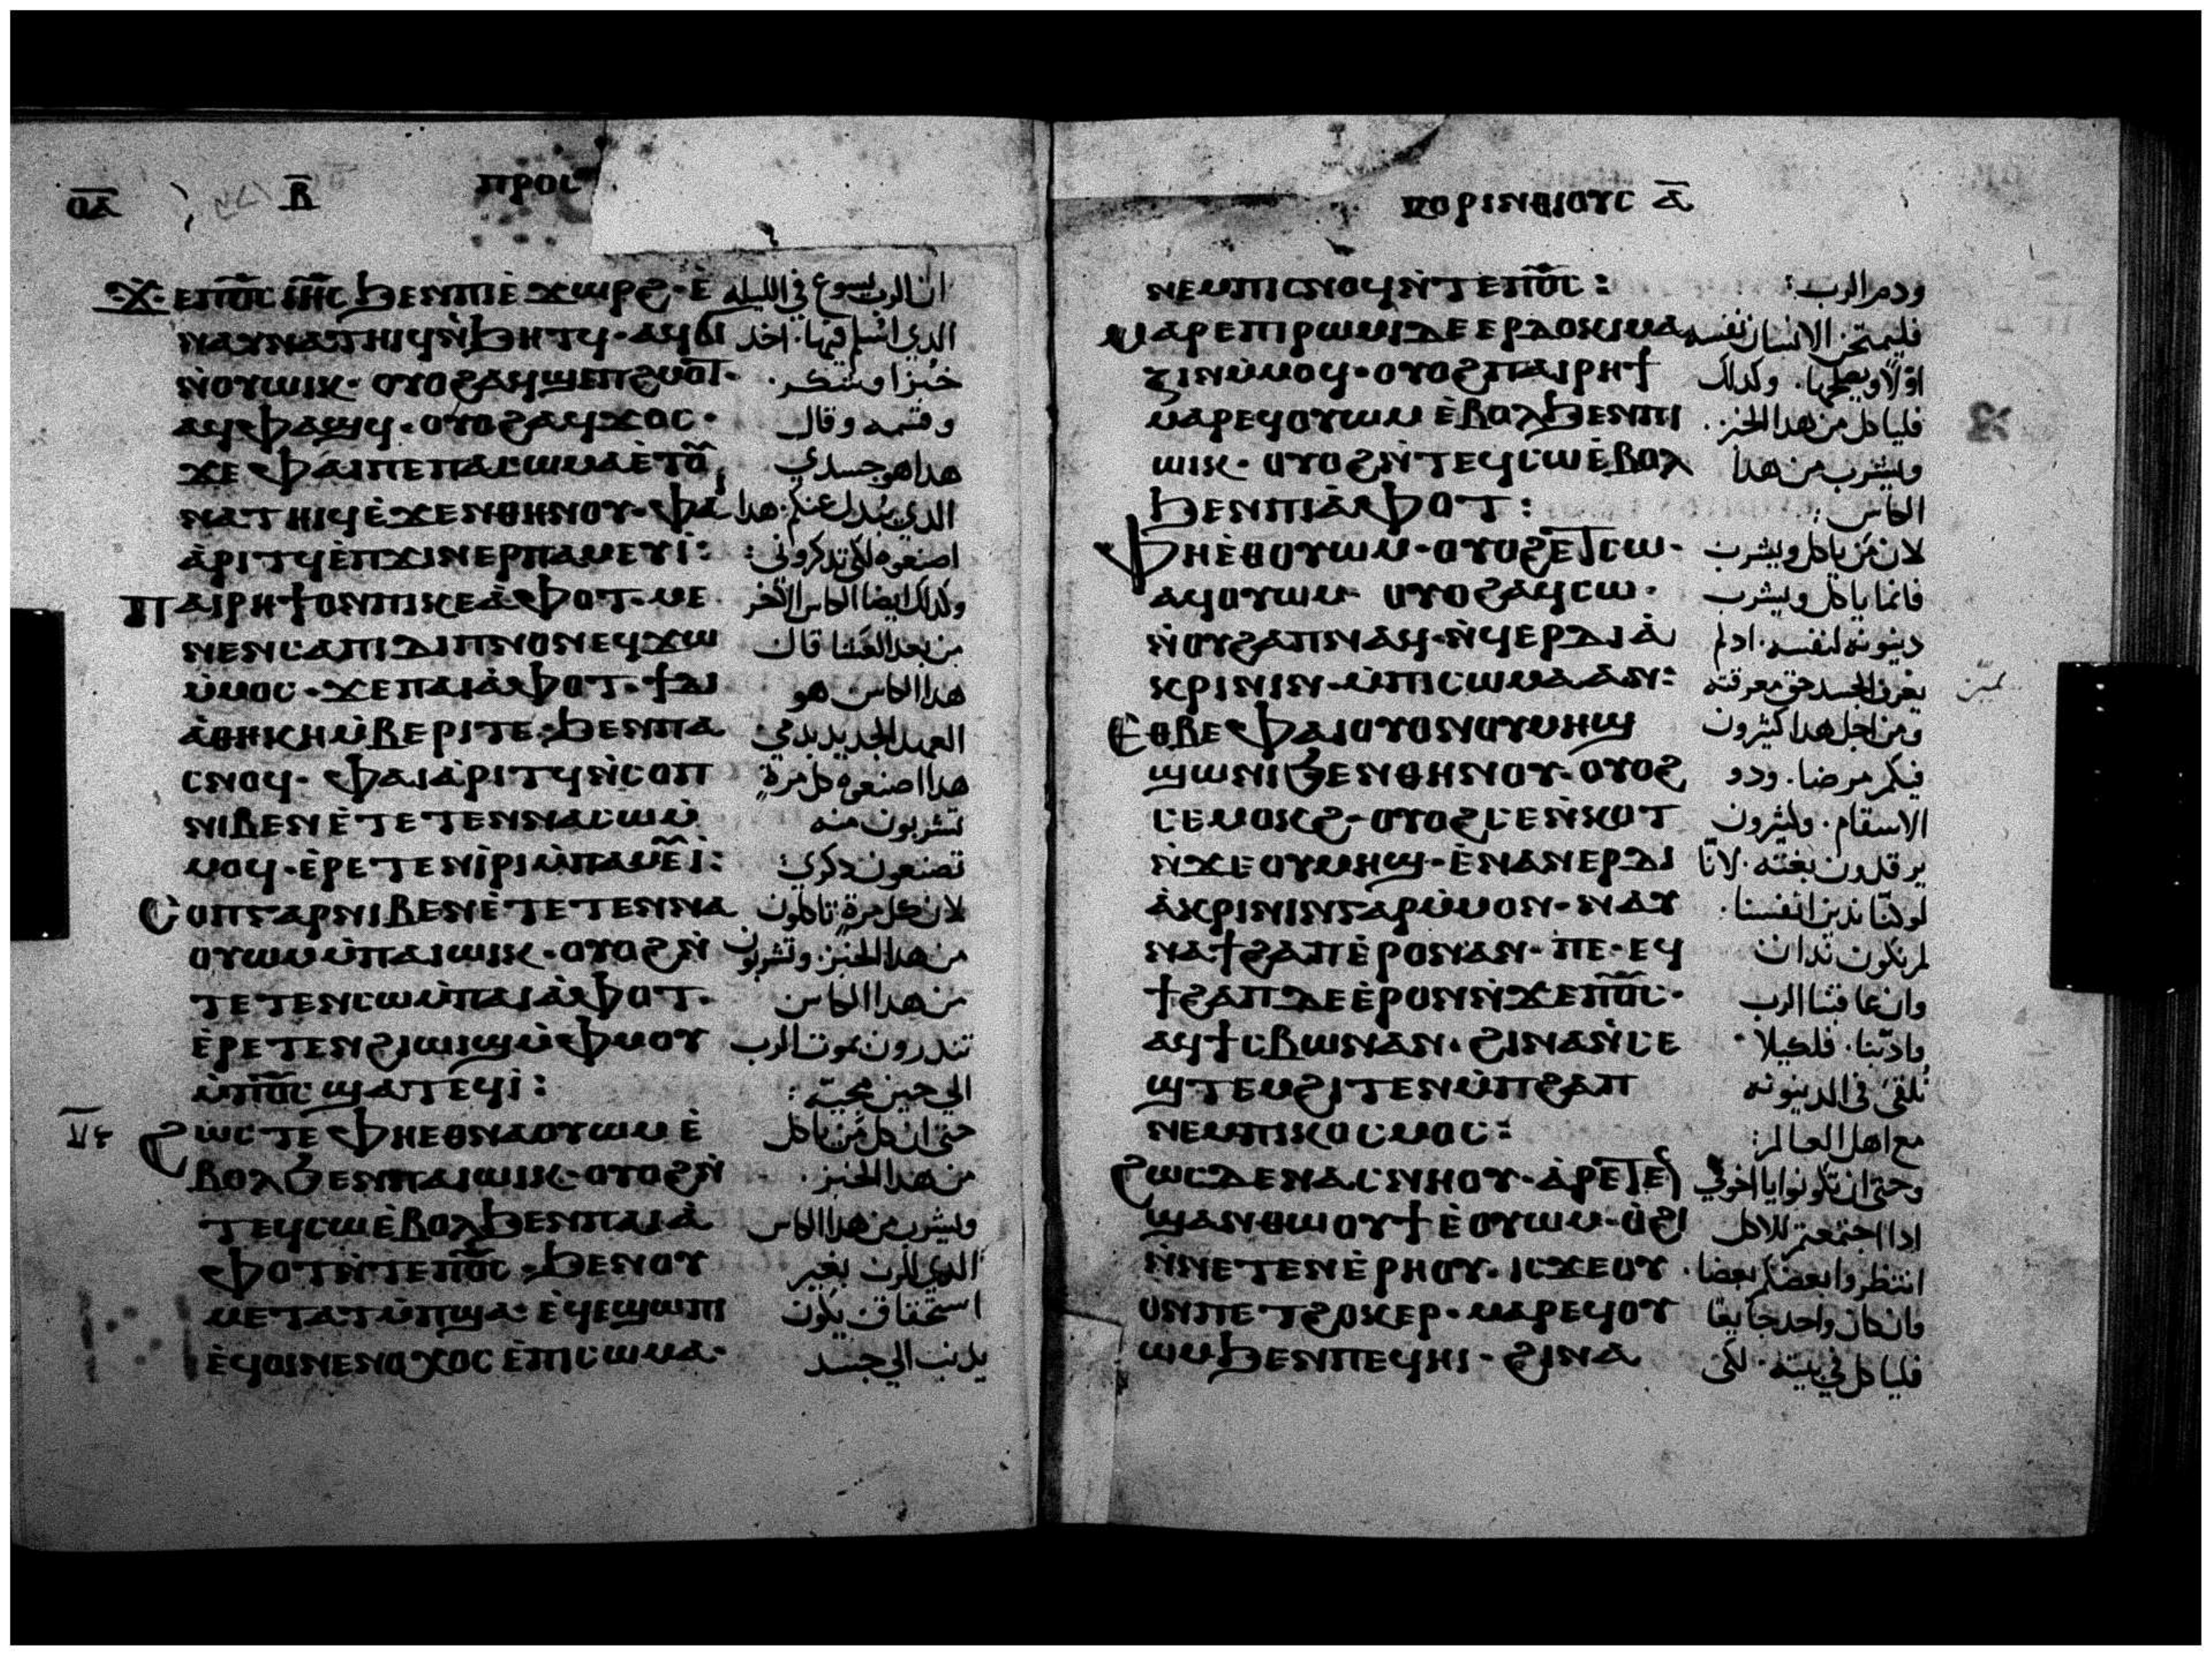 ⲟ̅ⲁ̅ ⲃ̅ ⲡⲣⲟⲥ
ϫⲉⲡϭ̅ⲥ̅ ⲓⲏ̅ⲥ̅ ϧⲉⲛⲡⲓⲉ̀ϫⲱⲣϩ·ⲉ̀ ان الرب يسوع في الليله
ⲛⲁⲩⲛⲁⲧⲏⲓϥⲛ̀ϧⲏⲧϥ·ⲁϥϭⲓ الدي اسلم فيها· اخد
ⲛ̀ⲟⲩⲱⲓⲕ·ⲟⲩⲟϩⲁϥϣⲉⲡϩⲙⲟⲧ· خبزا وشكر·
ⲁϥⲫⲁϣϥ·ⲟⲩⲟϩⲁϥϫⲟⲥ· وقسمه وقال
ϫⲉⲫⲁⲓⲡⲉⲡⲁⲥⲱⲙⲁⲉ̀ⲧⲟⲩ هدا هو جسدي
ⲛⲁⲧⲏⲓϥⲉ̀ϫⲉⲛⲑⲏⲛⲟⲩ·ⲫⲁⲓ الدي يبدل عنكم· هدا
ⲁ̀ⲣⲓⲧϥⲉ̀ⲡϫⲓⲛⲉⲣⲡⲁⲙⲉⲩⲓ̀: اصنعوه لكي تدكروني:
ⲡⲁⲓⲣⲏϯⲟⲛⲡⲓⲕⲉⲁ̀ⲫⲟⲧ·ⲙⲉ وكدلك ايضا الكاس الاخر
ⲛⲉⲛⲥⲁⲡⲓⲇⲓⲡⲛⲟⲛⲉϥϫⲱ من بعد العشا قال
ⲙ̀ⲙⲟⲥ·ϫⲉⲡⲁⲓⲁ̀ⲫⲟⲧ·ϯⲇⲓ هدا الكاس هو
ⲁ̀ⲑⲏⲕⲏⲙ̀ⲃⲉⲣⲓⲧⲉ·ϧⲉⲛⲡⲁ العهد الجديد بدمي
ⲥⲛⲟϥ·ⲫⲁⲓⲁ̀ⲣⲓⲧϥⲛ̀ⲥⲟⲡ هدا اصنعوه كل مرة
ⲛⲓⲃⲉⲛⲉ̀ⲧⲉⲧⲉⲛⲛⲁⲥⲱⲙ̀ تشربون منه
ⲙⲟϥ·ⲉ̀ⲣⲉⲧⲉⲛⲓ̀ⲣⲓⲙ̀ⲡⲁⲙⲉⲩⲓ̀: تصنعون دكري:
ⲥⲟⲡⲅⲁⲣⲛⲓⲃⲉⲛⲉ̀ⲧⲉⲧⲉⲛⲛⲁ لان كل مرة تاكلون
ⲟⲩⲱⲙⲙ̀ⲡⲁⲓⲱⲓⲕ·ⲟⲩⲟϩⲛ̀ من هدا الخبز· وتشربون
ⲧⲉⲧⲉⲛⲥⲱⲙ̀ⲡⲁⲓⲁ̀ⲫⲟⲧ· من هدا الكاس
ⲉ̀ⲣⲉⲧⲉⲛϩⲓⲱⲓϣⲙ̀ⲫⲙⲟⲩ تندرون بموت الرب
ⲙ̀ⲡϭ̅ⲥ̅ ϣⲁⲧⲉϥⲓ̀: الي حين مجيه:
ϩⲱⲥⲧⲉⲫⲏⲉⲑⲛⲁⲟⲩⲱⲙⲉ̀ حتى ان كل من ياكل
ⲃⲟⲗϧⲉⲛⲡⲁⲓⲱⲓⲕ·ⲟⲩⲟϩⲛ̀ من هدا الخبز·
ⲧⲉϥⲥⲱⲉ̀ⲃⲟⲗϧⲉⲛⲡⲁⲓⲁ̀ ويشرب من هدا الكاس
ⲫⲟⲧⲛ̀ⲧⲉⲡϭ̅ⲥ̅·ϧⲉⲛⲟⲩ الدي للرب بغير
ⲙⲉⲧⲁⲧⲙ̀ⲡϣⲁ·ⲉϥⲉ̀ϣⲱⲡⲓ استحقاق يكون
ⲉ̀ϥⲟⲓⲛⲉⲛⲟⲭⲟⲥⲉ̀ⲡⲓⲥⲱⲙⲁ· يدنب الي جسد
ⲕⲟⲣⲓⲛⲑⲓⲟⲩⲥ ⲁ̅
ⲛⲉⲙⲡⲓⲥⲛⲟϥⲛ̀ⲧⲉⲡϭ̅ⲥ̅: ودم الرب:
ⲙⲁⲣⲉⲡⲓⲣⲱⲙⲓⲇⲉⲉⲣⲇⲟⲕⲓⲙⲁ فليمتحن الانسان نفسه
ⲍⲓⲛⲙ̀ⲙⲟϥ·ⲟⲩⲟϩⲡⲁⲓⲣⲏϯ اولا ويصلحها· وكدلك
ⲙⲁⲣⲉϥⲟⲩⲱⲙⲉ̀ⲃⲟⲗϧⲉⲛⲡⲓ فلياكل من هدا الخبز·
ⲱⲓⲕ·ⲟⲩⲟϩⲛ̀ⲧⲉϥⲥⲱⲉ̀ⲃⲟⲗ ويشرب من هدا
ϧⲉⲛⲡⲓⲁ̀ⲫⲟⲧ: الكاس:
ⲫⲏⲉ̀ⲑⲟⲩⲱⲙ·ⲟⲩⲟϩⲉⲧⲥⲱ· لان من ياكل ويشرب
ⲁϥⲟⲩⲱⲙ·ⲟⲩⲟϩⲁϥⲥⲱ· فانما ياكل ويشرب
ⲛ̀ⲟⲩϩⲁⲡⲛⲁϥ·ⲛ̀ϥⲉⲣⲇⲓⲁ̀ دينونه لنفسه· ادلم
ⲕⲣⲓⲛⲓⲛ·ⲙ̀ⲡⲓⲥⲱⲙⲁⲁⲛ: يعرف الجسد حق معرفته
ⲉⲑⲃⲉⲫⲁⲓⲟⲩⲟⲛⲟⲩⲙⲏϣ ومن اجل هدا كثيرون
ϣⲱⲛⲓϧⲉⲛⲑⲏⲛⲟⲩ·ⲟⲩⲟϩ فيكم مرضا· ودوو
ⲥⲉⲙⲟⲕϩ·ⲟⲩⲟϩⲥⲉⲛ̀ⲕⲟⲧ الاسقام· وكثيرون
ⲛ̀ϫⲉⲟⲩⲙⲏϣ·ⲉ̀ⲛⲁⲛⲉⲣⲇⲓ يرقدون بغته· لانا
ⲁ̀ⲕⲣⲓⲛⲓⲛⲅⲁⲣⲙ̀ⲙⲟⲛ·ⲛⲁⲩ لو كنا ندين انفسنا·
ⲛⲁϯϩⲁⲡⲉ̀ⲣⲟⲛⲁⲛ·ⲡⲉ·ⲉϥ لم نكون ندان
ϯϩⲁⲡⲇⲉⲉ̀ⲣⲟⲛⲛ̀ϫⲉⲡϭ̅ⲥ̅· وان عاقبنا الرب
ⲁϥϯⲥⲃⲱⲛⲁⲛ·ϩⲓⲛⲁⲛ̀ⲥⲉ وادبنا· فلكيلا·
ϣⲧⲉⲙϩⲓⲧⲉⲛⲙ̀ⲡϩⲁⲡ نلقى في الدينونه
ⲛⲉⲙⲡⲓⲕⲟⲥⲙⲟⲥ: مع اهل العالم:
ϩⲱⲥⲇⲉⲛⲁⲥⲛⲏⲟⲩ·ⲁ̀ⲣⲉⲧⲉⲛ وحتى ان تكونوا يا اخوتي
ϣⲁⲛⲑⲱⲟⲩϯⲉ̀ⲟⲩⲱⲙ·ⲟ̀ϩⲓ ادا اجتمعتم للاكل
ⲛ̀ⲛⲉⲧⲉⲛⲉ̀ⲣⲏⲟⲩ·ⲓⲥϫⲉⲟⲩ انتظروا بعضكم بعضا·
ⲟⲛⲡⲉⲧϩⲟⲕⲉⲣ·ⲙⲁⲣⲉϥⲟⲩ وان كان واحد جايعا
ⲱⲙϧⲉⲛⲡⲉϥⲏⲓ·ϩⲓⲛⲁ فلياكل في بيته· لكي